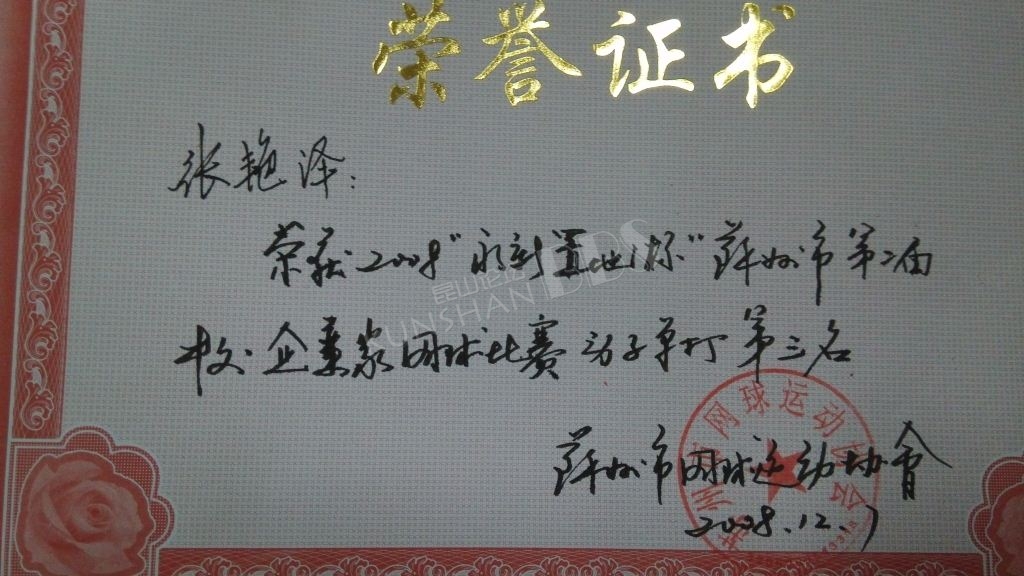 荣誉证书
张艳泽:
荣获2008"永新置地杯"蘇州市第二届
企業家网球比赛男子单打第三名
蘇州市网球运动协會
2008.12.7
州市网球运动协会
昆山论坛
KUNSHAN BBS